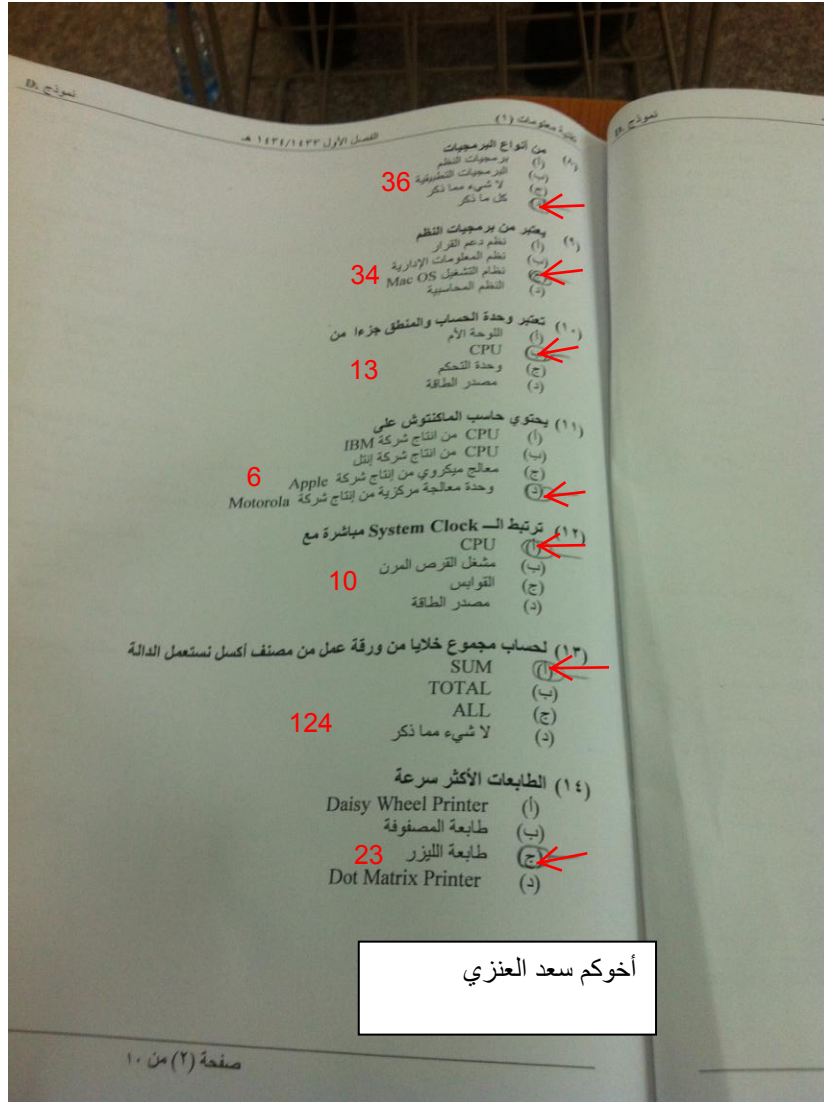 نموذج D
تقنية معلومات (١)
الفصل الأول ١٤٣٤/١٤٣٣ هـ
نموذج D
(٨) من أنواع البرمجيات
(أ) برمجيات النظم
(ب) البرمجيات التطبيقية
36
(ج) لا شيء مما ذكر
(د) كل ما ذكر
(٩) يعتبر من برمجيات النظم
(أ) نظم دعم القرار
(ب) نظم المعلومات الإدارية
34
(ج) نظام التشغيل Mac OS
(د) النظم المحاسبية
(١٠) تعتبر وحدة الحساب والمنطق جزءا من
(أ) اللوحة الأم
(ب) CPU
13
(ج) وحدة التحكم
(د) مصدر الطاقة
(١١) يحتوي حاسب الماكنتوش على
(أ) CPU من انتاج شركة IBM
(ب) CPU من انتاج شركة إنتل
6
(ج) معالج ميكروي من إنتاج شركة Apple
(د) وحدة معالجة مركزية من إنتاج شركة Motorola
(١٢) ترتبط الـــ System Clock مباشرة مع
(أ) CPU
(ب) مشغل القرص المرن
10
(ج) القوابس
(د) مصدر الطاقة
(١٣) لحساب مجموع خلايا من ورقة عمل من مصنف أكسل نستعمل الدالة
(أ) SUM
(ب) TOTAL
(ج) ALL
124
(د) لا شيء مما ذكر
(١٤) الطابعات الأكثر سرعة
(أ) Daisy Wheel Printer
(ب) طابعة المصفوفة
23
(ج) طابعة الليزر
(د) Dot Matrix Printer
أخوكم سعد العنزي
صفحة (٢) من ١٠